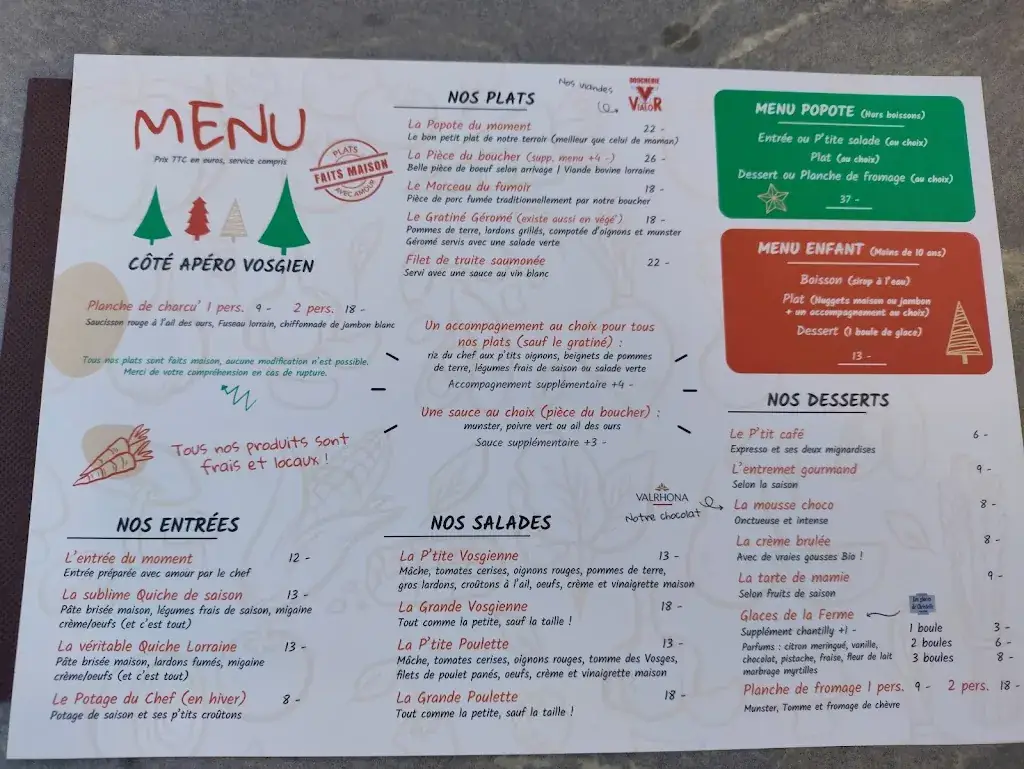 MENU
Prix TTC en euros, service compris
PLATS
FAITS MAISON
AVEC AMOUR
CÔTÉ APÉRO VOSGIEN
Planche de charcu' 1 pers. 9 - 2 pers. 18 -
Saucisson rouge à l'ail des ours, Fuseau lorrain, chiffonnade de jambon blanc
Tous nos plats sont faits maison, aucune modification n'est possible.
Merci de votre compréhension en cas de rupture.
Tous nos produits sont
frais et locaux !
NOS ENTRÉES
L'entrée du moment 12 -
Entrée préparée avec amour par le chef
La sublime Quiche de saison 13 -
Pâte brisée maison, légumes frais de saison, migaine
crème/oeufs (et c'est tout)
La véritable Quiche Lorraine 13 -
Pâte brisée maison, lardons fumés, migaine
crème/oeufs (et c'est tout)
Le Potage du Chef (en hiver) 8 -
Potage de saison et ses p'tits croûtons
NOS PLATS
Nos viandes
BOUCHERIE
VIALOR
La Popote du moment 22 -
Le bon petit plat de notre terroir (meilleur que celui de maman)
La Pièce du boucher (supp. menu +4 -) 26 -
Belle pièce de boeuf selon arrivage | Viande bovine lorraine
Le Morceau du fumoir 18 -
Pièce de porc fumée traditionnellement par notre boucher
Le Gratiné Géromé (existe aussi en végé') 18 -
Pommes de terre, lardons grillés, compotée d'oignons et munster
Géromé servis avec une salade verte
Filet de truite saumonée 22 -
Servi avec une sauce au vin blanc
Un accompagnement au choix pour tous
nos plats (sauf le gratiné) :
riz du chef aux p'tits oignons, beignets de pommes
de terre, légumes frais de saison ou salade verte
Accompagnement supplémentaire +4 -
Une sauce au choix (pièce du boucher) :
munster, poivre vert ou ail des ours
Sauce supplémentaire +3 -
NOS SALADES
La P'tite Vosgienne 13 -
Mâche, tomates cerises, oignons rouges, pommes de terre,
gros lardons, croûtons à l'ail, oeufs, crème et vinaigrette maison
La Grande Vosgienne 18 -
Tout comme la petite, sauf la taille !
La P'tite Poulette 13 -
Mâche, tomates cerises, oignons rouges, tomme des Vosges,
filets de poulet panés, oeufs, crème et vinaigrette maison
La Grande Poulette 18 -
Tout comme la petite, sauf la taille !
MENU POPOTE (Hors boissons)
Entrée ou P'tite salade (au choix)
Plat (au choix)
Dessert ou Planche de fromage (au choix)
37 -
MENU ENFANT (Moins de 10 ans)
Boisson (sirop à l'eau)
Plat (Nuggets maison ou jambon
+ un accompagnement au choix)
Dessert (1 boule de glace)
13 -
NOS DESSERTS
Le P'tit café 6 -
Expresso et ses deux mignardises
L'entremet gourmand 9 -
Selon la saison
VALRHONA
Notre chocolat
La mousse choco 8 -
Onctueuse et intense
La crème brulée 8 -
Avec de vraies gousses Bio !
La tarte de mamie 9 -
Selon fruits de saison
Glaces de la Ferme
Supplément chantilly +1 -
Parfums : citron meringué, vanille,
chocolat, pistache, fraise, fleur de lait
marbrage myrtilles
1 boule 3 -
2 boules 6 -
3 boules 8 -
Planche de fromage 1 pers. 9 - 2 pers. 18 -
Munster, Tomme et fromage de chèvre